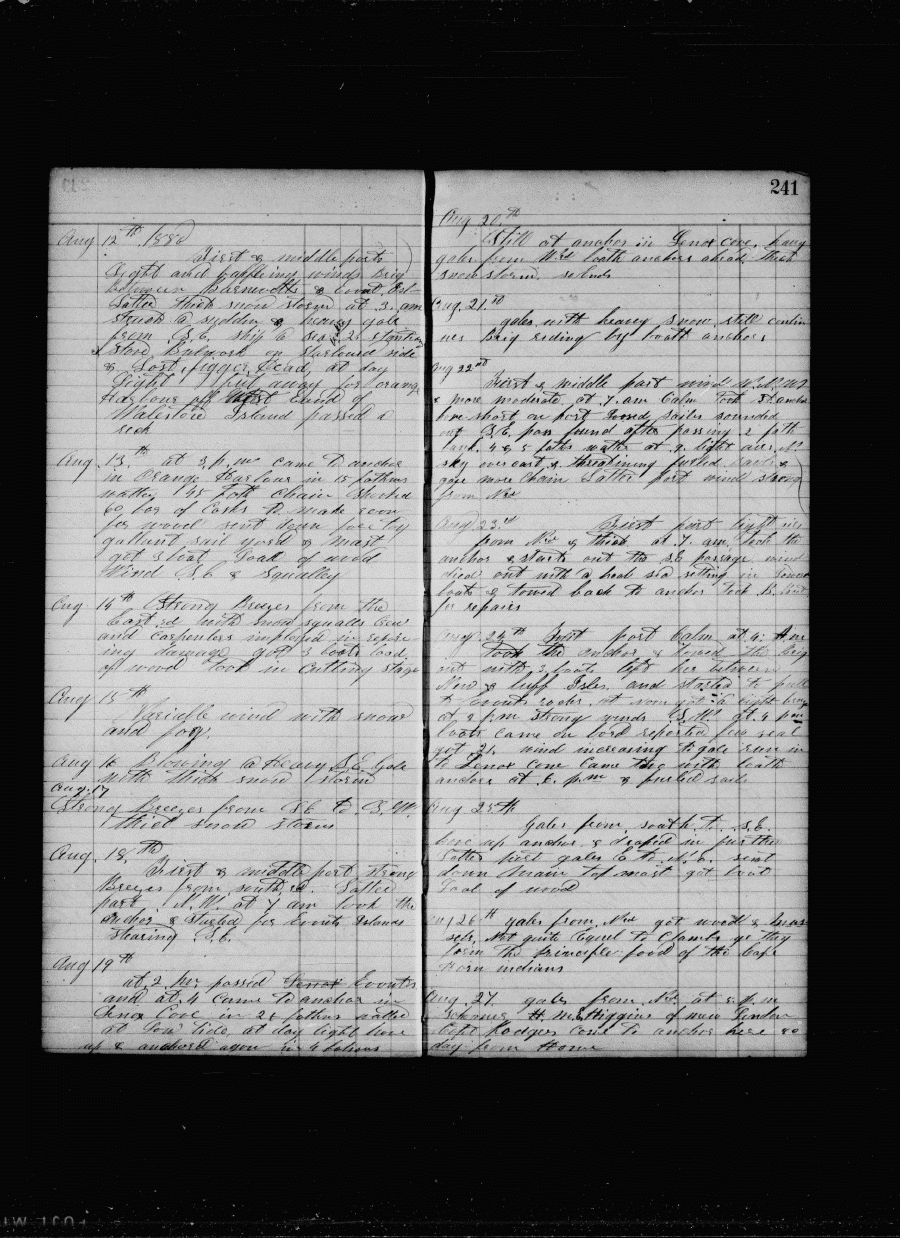 241
Aug 12th 1880
First & middle parts
Light and baffleing winds Brig
between Barnevelts & Evout Isl
Latter thick snow storm at 3. am
struck a sudden & heavy gale
from S.E. ship a sea 2 stantion
stove Bulwork on starboard side
& Lost figger head, at day
Light put away for orange
Harbour off West end of
Walestore Island passed a
reck
Aug 13th at 3 p.m. came to anchor
in Orange Harbour in 15 fathoms
watter 45 fath chain Shooked
60 bbs of Casks to make room
for wood sent down fore try
gallant sail yard & mast
got 3 boat Load of wood
Wind S.E & Squalley
Aug 14th Strong Breezes from the
East.rd with snow squalls Crew
and Carpenters imployed in repair
ing damage got 3 boats load
of wood took in Cutting stage
Aug 15th
Variable wind with snow
and fog.
Aug 16 Blowing a Heavy S.E Gale
with thick snow storm
Aug. 17
Strong Breezes from S.E to S.W.
thick snow storm
Aug. 18.th
First & middle port strong
Breezes from southrd. Latter
part N.W. at 7 am took the
anchor & started for Evouts Islands
stearing S.E.
Aug 19th
at 2. her passed Lenox Evouts
and at 4 came to anchor in
Lenox Cove in 2 fathoms watter
at Low tide, at day light hove
up & anchored again in 4 fathoms
Aug 20.th
Still at anchor in Lenox cove. heavy
gales from W.rd both anchors ahead thick
snow storm. so Ends
Aug. 21.st
gales with heavy snow, still contin
ues Brig riding by both anchors
Aug 22nd
First & middle part wind W.N.W
& more moderate at 7. am Calm Took anchor
hove short on port Loosed sailes sounded
out S.E. pass found after passing 2 fath
bank. 4 & 5 faths watter at 9. light airs N.
sky overcast & threatining furled sailes &
gave more Chain Latter part wind strong
from Nrd
Aug 23.d First part light airs
from Nrd & thick at 7. am, took the
anchor & starts out the S.E passage wind
died out with a head sea setting in Lowered
boats & towed back to anchor Took B. boat
for repairs
Aug. 24th First port Calm at 4. A.m
Took the anchor & towed the brig
out with 3. boats left her between
New & Luff Isles. and started to pull
to Evouts rocks. at noon got a light breeze
at 2 p.m strong winds S.W. at 4 pm
boats came on bord reported few seal
got 21, wind increasing to gale run in
to Lenox cove came too with boath
anchors at 6. p.m & furled sails
Aug 25th
Gales from south. to S.E.
hove up anchor & droped in further
Latter part gales E to N.E. sent
down main top mast got boat
Load of wood
Aug 26th gales from Nrd got wood & mus
sels, Not quite Equel to Clams yet they
form the principle food of the Cape
Horn indians
Aug. 27. gales from N. at 5. p.m
Schoner H. M. Higgins of new London
Capt Rodgers came to anchor here 80
day from Home